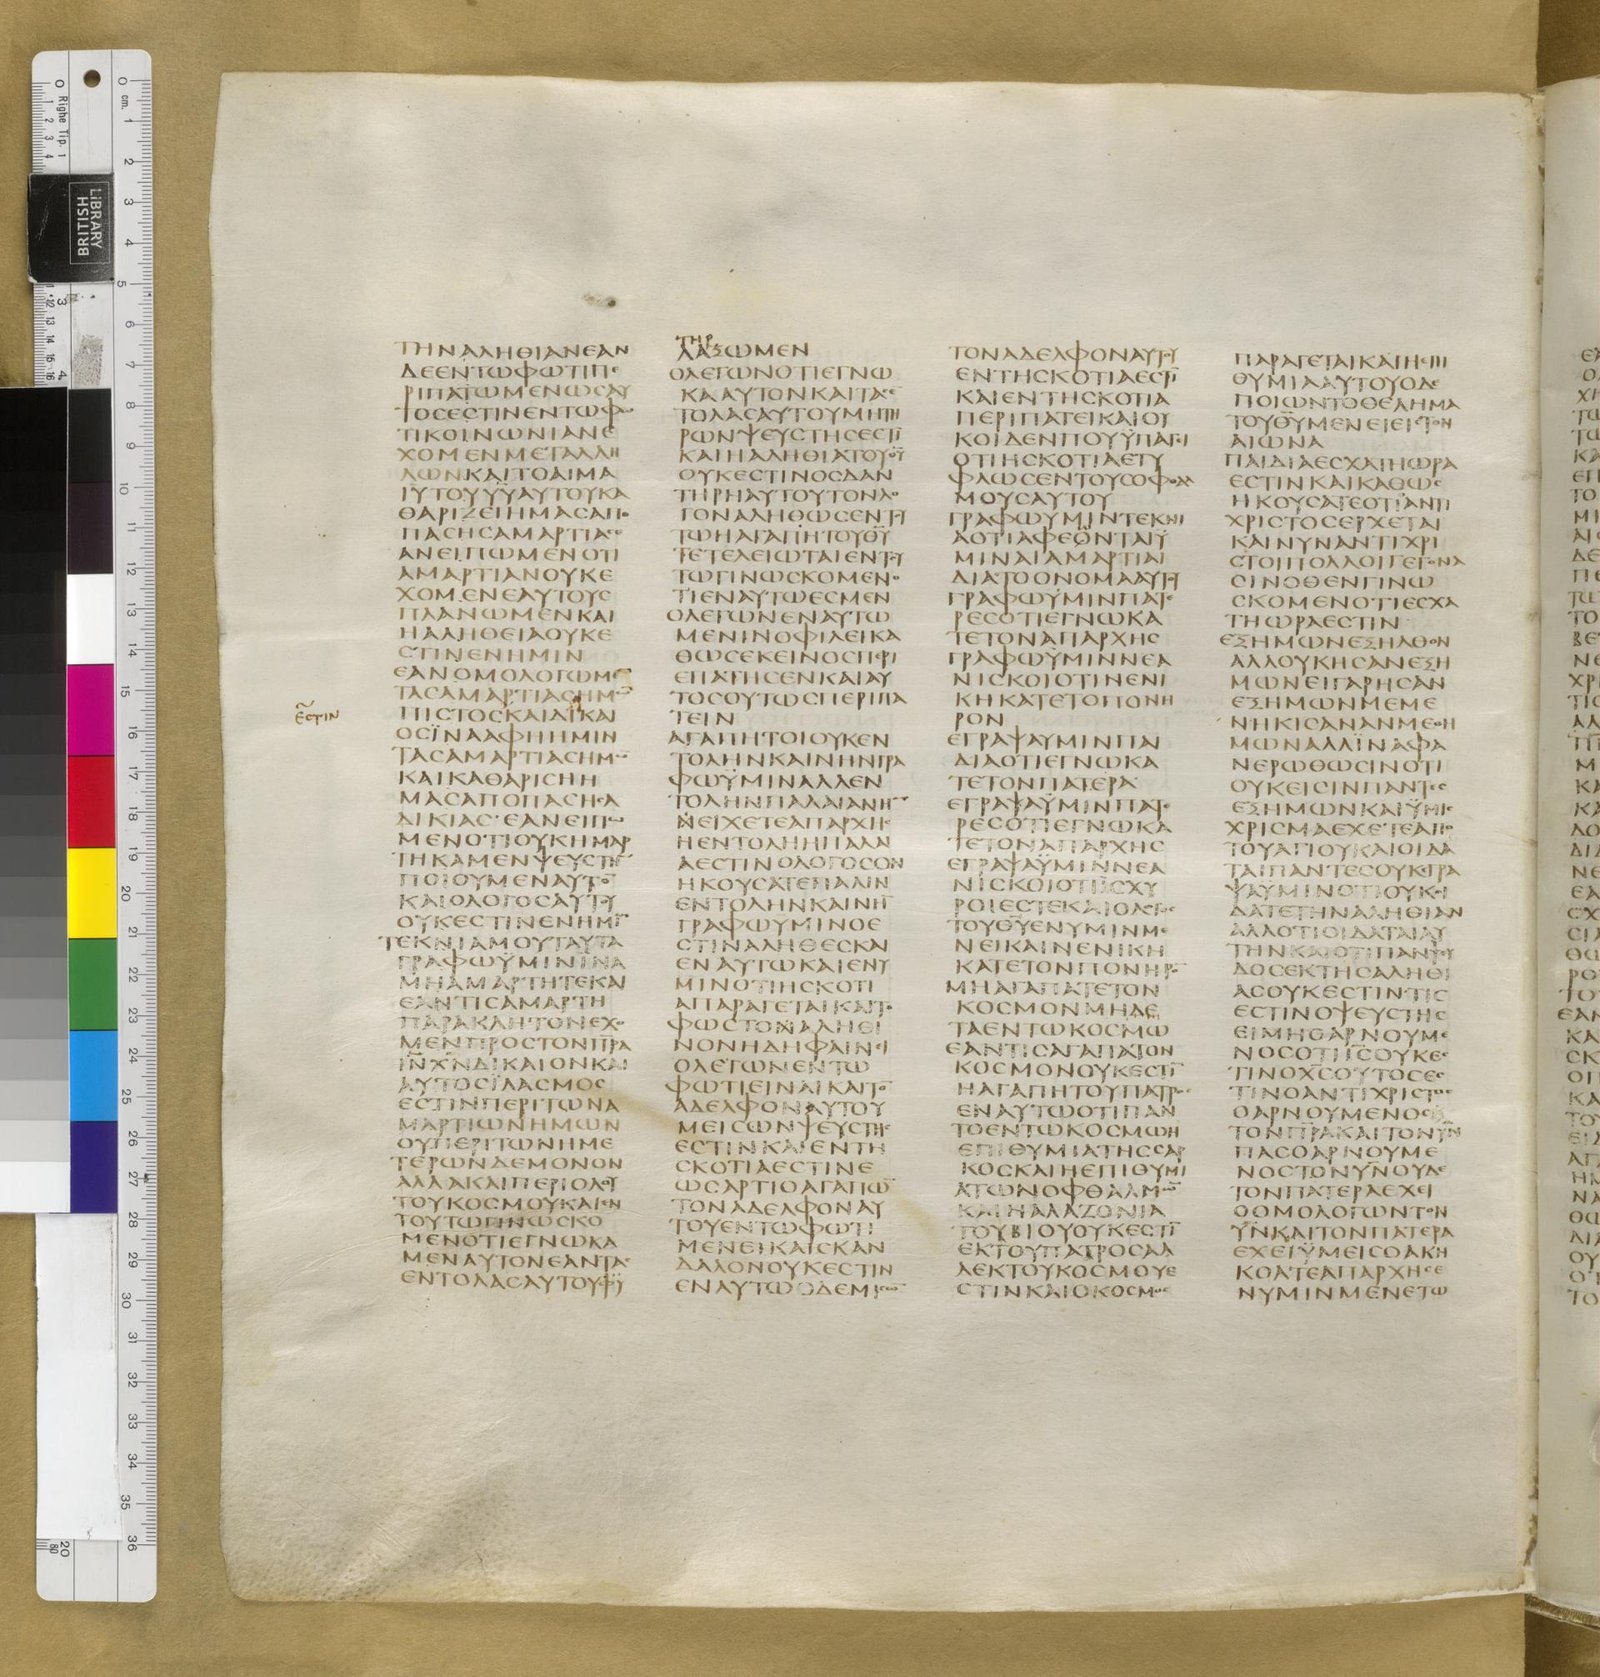 ΤΗΝΑΛΗΘΙΑΝΕΑΝ
ΔΕΕΝΤΩΦΩΤΙΠΕ
ΡΙΠΑΤΩΜΕΝΩϹΑΥ
ΤΟϹΕϹΤΙΝΕΝΤΩΦΩ
ΤΙΚΟΙΝΩΝΙΑΝΕ
ΧΟΜΕΝΜΕΤΑΛΛΗ
ΛΩΝΚΑΙΤΟΑΙΜΑ
ΙΥΤΟΥΥΥΑΥΤΟΥΚΑ
ΘΑΡΙΖΕΙΗΜΑϹΑΠΟ
ΠΑϹΗϹΑΜΑΡΤΙΑϹ
ΑΝΕΙΠΩΜΕΝΟΤΙ
ΑΜΑΡΤΙΑΝΟΥΚΕ
ΧΟΜΕΝΕΑΥΤΟΥϹ
ΠΛΑΝΩΜΕΝΚΑΙ
ΗΑΛΗΘΕΙΑΟΥΚΕ
ϹΤΙΝΕΝΗΜΙΝ
ΕΑΝΟΜΟΛΟΓΩΜΕ
ΤΑϹΑΜΑΡΤΙΑϹΗΜΩ
ΕϹΤΙΝ
ΠΙϹΤΟϹΚΑΙΔΙΚΑΙ
ΟϹΪΝΑΑΦΗΗΜΙΝ
ΤΑϹΑΜΑΡΤΙΑϹΗΜΩ
ΚΑΙΚΑΘΑΡΙϹΗΗ
ΜΑϹΑΠΟΠΑϹΗϹΑ
ΔΙΚΙΑϹΕΑΝΕΙΠΩ
ΜΕΝΟΤΙΟΥΚΗΜΑΡ
ΤΗΚΑΜΕΝΨΕΥϹΤΗ
ΠΟΙΟΥΜΕΝΑΥΤΟ
ΚΑΙΟΛΟΓΟϹΑΥΤΟΥ
ΟΥΚΕϹΤΙΝΕΝΗΜΙ
ΤΕΚΝΙΑΜΟΥΤΑΥΤΑ
ΓΡΑΦΩΫΜΙΝΪΝΑ
ΜΗΑΜΑΡΤΗΤΕΚΑΙ
ΕΑΝΤΙϹΑΜΑΡΤΗ
ΠΑΡΑΚΛΗΤΟΝΕΧΟ
ΜΕΝΠΡΟϹΤΟΝΠΡΑ
ΙΝΧΝΔΙΚΑΙΟΝΚΑΙ
ΑΥΤΟϹΪΛΑϹΜΟϹ
ΕϹΤΙΝΠΕΡΙΤΩΝΑ
ΜΑΡΤΙΩΝΗΜΩΝ
ΟΥΠΕΡΙΤΩΝΗΜΕ
ΤΕΡΩΝΔΕΜΟΝΟΝ
ΑΛΛΑΚΑΙΠΕΡΙΟΛΟΥ
ΤΟΥΚΟϹΜΟΥΚΑΙΕΝ
ΤΟΥΤΩΓΙΝΩϹΚΟ
ΜΕΝΟΤΙΕΓΝΩΚΑ
ΜΕΝΑΥΤΟΝΕΑΝΤΑϹ
ΕΝΤΟΛΑϹΑΥΤΟΥΦΥ
ΤΗΡ
ΛΑΞΩΜΕΝ
ΟΛΕΓΩΝΟΤΙΕΓΝΩ
ΚΑΑΥΤΟΝΚΑΙΤΑϹΕ
ΤΟΛΑϹΑΥΤΟΥΜΗΤΗ
ΡΩΝΨΕΥϹΤΗϹΕϹΤΙ
ΚΑΙΗΑΛΗΘΙΑΤΟΥΘΥ
ΟΥΚΕϹΤΙΝΟϹΔΑΝ
ΤΗΡΗΑΥΤΟΥΤΟΝΛΟ
ΓΟΝΑΛΗΘΩϹΕΝΤΟΥ
ΤΩΗΑΓΑΠΗΤΟΥΘΥ
ΤΕΤΕΛΕΙΩΤΑΙΕΝΤΟΥ
ΤΩΓΙΝΩϹΚΟΜΕΝΟ
ΤΙΕΝΑΥΤΩΕϹΜΕΝ
ΟΛΕΓΩΝΕΝΑΥΤΩ
ΜΕΝΙΝΟΦΙΛΕΙΚΑ
ΘΩϹΕΚΕΙΝΟϹΠΕΡΙ
ΕΠΑΤΗϹΕΝΚΑΙΑΥ
ΤΟϹΟΥΤΩϹΠΕΡΙΠΑ
ΤΕΙΝ
ΑΓΑΠΗΤΟΙΟΥΚΕΝ
ΤΟΛΗΝΚΑΙΝΗΝΓΡΑ
ΦΩΫΜΙΝΑΛΛΕΝ
ΤΟΛΗΝΠΑΛΑΙΑΝΗ
ΝΕΙΧΕΤΕΑΠΑΡΧΗϹ
ΗΕΝΤΟΛΗΗΠΑΛΑΙ
ΑΕϹΤΙΝΟΛΟΓΟϹΟΝ
ΗΚΟΥϹΑΤΕΠΑΛΙΝ
ΕΝΤΟΛΗΝΚΑΙΝΗ
ΓΡΑΦΩΥΜΙΝΟΕ
ϹΤΙΝΑΛΗΘΕϹΚΑΙ
ΕΝΑΥΤΩΚΑΙΕΝΥ
ΜΙΝΟΤΙΗϹΚΟΤΙ
ΑΠΑΡΑΓΕΤΑΙΚΑΙΤΟ
ΦΩϹΤΟΑΛΗΘΙ
ΝΟΝΗΔΗΦΑΙΝΕΙ
ΟΛΕΓΩΝΕΝΤΩ
ΦΩΤΙΕΙΝΑΙΚΑΙΤΟ
ΑΔΕΛΦΟΝΑΥΤΟΥ
ΜΕΙϹΩΝΨΕΥϹΤΗϹ
ΕϹΤΙΝΚΑΙΕΝΤΗ
ϹΚΟΤΙΑΕϹΤΙΝΕ
ΩϹΑΡΤΙΟΑΓΑΠΩ
ΤΟΝΑΔΕΛΦΟΝΑΥ
ΤΟΥΕΝΤΩΦΩΤΙ
ΜΕΝΕΙΚΑΙϹΚΑΝ
ΔΑΛΟΝΟΥΚΕϹΤΙΝ
ΕΝΑΥΤΩΟΔΕΜΙϹΩ
ΤΟΝΑΔΕΛΦΟΝΑΥΤΟΥ
ΕΝΤΗϹΚΟΤΙΑΕϹΤΙ
ΚΑΙΕΝΤΗϹΚΟΤΙΑ
ΠΕΡΙΠΑΤΕΙΚΑΙΟΥ
ΚΟΙΔΕΝΠΟΥΫΠΑΓΕΙ
ΟΤΙΗϹΚΟΤΙΑΕΤΥ
ΦΛΩϹΕΝΤΟΥϹΟΦΘΑΛ
ΜΟΥϹΑΥΤΟΥ
ΓΡΑΦΩΥΜΙΝΤΕΚΝΙ
ΑΟΤΙΑΦΕΩΝΤΑΙΫ
ΜΙΝΑΙΑΜΑΡΤΙΑΙ
ΔΙΑΤΟΟΝΟΜΑΑΥΤΟΥ
ΓΡΑΦΩΫΜΙΝΠΑΤΕ
ΡΕϹΟΤΙΕΓΝΩΚΑ
ΤΕΤΟΝΑΠΑΡΧΗϹ
ΓΡΑΦΩΫΜΙΝΝΕΑ
ΝΙϹΚΟΙΟΤΙΝΕΝΙ
ΚΗΚΑΤΕΤΟΠΟΝΗ
ΡΟΝ
ΕΓΡΑΨΑΥΜΙΝΠΑΙ
ΔΙΑΟΤΙΕΓΝΩΚΑ
ΤΕΤΟΝΠΑΤΕΡΑ
ΕΓΡΑΨΑΫΜΙΝΠΑΤΕ
ΡΕϹΟΤΙΕΓΝΩΚΑ
ΤΕΤΟΝΑΠΑΡΧΗϹ
ΕΓΡΑΨΑΫΜΙΝΝΕΑ
ΝΙϹΚΟΙΟΤΙΪϹΧΥ
ΡΟΙΕϹΤΕΚΑΙΟΛΟΓΟϹ
ΤΟΥΘΥΕΝΥΜΙΝΜΕ
ΝΕΙΚΑΙΝΕΝΙΚΗ
ΚΑΤΕΤΟΝΠΟΝΗΡΟ
ΜΗΑΓΑΠΑΤΕΤΟΝ
ΚΟϹΜΟΝΜΗΔΕ
ΤΑΕΝΤΩΚΟϹΜΩ
ΕΑΝΤΙϹΑΓΑΠΑΤΟΝ
ΚΟϹΜΟΝΟΥΚΕϹΤΙ
ΗΑΓΑΠΗΤΟΥΠΑΤΡΟϹ
ΕΝΑΥΤΩΟΤΙΠΑΝ
ΤΟΕΝΤΩΚΟϹΜΩΗ
ΕΠΙΘΥΜΙΑΤΗϹϹΑΡ
ΚΟϹΚΑΙΗΕΠΙΘΥΜΙ
ΑΤΩΝΟΦΘΑΛΜΩ
ΚΑΙΗΑΛΑΖΟΝΙΑ
ΤΟΥΒΙΟΥΟΥΚΕϹΤΙ
ΕΚΤΟΥΠΑΤΡΟϹΑΛ
ΛΕΚΤΟΥΚΟϹΜΟΥΕ
ϹΤΙΝΚΑΙΟΚΟϹΜΟϹ
ΠΑΡΑΓΕΤΑΙΚΑΙΗΕΠΙ
ΘΥΜΙΑΑΥΤΟΥΟΔΕ
ΠΟΙΩΝΤΟΘΕΛΗΜΑ
ΤΟΥΘΥΜΕΝΕΙΕΙϹΤΟΝ
ΑΙΩΝΑ
ΠΑΙΔΙΑΕϹΧΑΤΗΩΡΑ
ΕϹΤΙΝΚΑΙΚΑΘΩϹ
ΗΚΟΥϹΑΤΕΟΤΙΑΝΤΙ
ΧΡΙϹΤΟϹΕΡΧΕΤΑΙ
ΚΑΙΝΥΝΑΝΤΙΧΡΙ
ϹΤΟΙΠΟΛΛΟΙΓΕΓΟΝΑ
ϹΙΝΟΘΕΝΓΙΝΩ
ϹΚΟΜΕΝΟΤΙΕϹΧΑ
ΤΗΩΡΑΕϹΤΙΝ
ΕΞΗΜΩΝΕΞΗΛΘΟΝ
ΑΛΛΟΥΚΗϹΑΝΕΞΗ
ΜΩΝΕΙΓΑΡΗϹΑΝ
ΕΞΗΜΩΝΜΕΜΕ
ΝΗΚΙϹΑΝΑΝΜΕΘΗ
ΜΩΝΑΛΛΪΝΑΦΑ
ΝΕΡΩΘΩϹΙΝΟΤΙ
ΟΥΚΕΙϹΙΝΠΑΝΤΕϹ
ΕΞΗΜΩΝΚΑΙΫΜΙϹ
ΧΡΙϹΜΑΕΧΕΤΕΑΠΟ
ΤΟΥΑΓΙΟΥΚΑΙΟΙΔΑ
ΤΑΙΠΑΝΤΕϹΟΥΚΕΓΡΑ
ΨΑΥΜΙΝΟΤΙΟΥΚΟΙ
ΔΑΤΕΤΗΝΑΛΗΘΙΑΝ
ΑΛΛΟΤΙΟΙΔΑΤΑΙΑΥ
ΤΗΝΚΑΙΟΤΙΠΑΝΨΕΥ
ΔΟϹΕΚΤΗϹΑΛΗΘΙ
ΑϹΟΥΚΕϹΤΙΝΤΙϹ
ΕϹΤΙΝΟΨΕΥϹΤΗϹ
ΕΙΜΗΟΑΡΝΟΥΜΕ
ΝΟϹΟΤΙΙϹΟΥΚΕ
ΤΙΝΟΧϹΟΥΤΟϹΕϹ
ΤΙΝΟΑΝΤΙΧΡΙϹΤΟϹ
ΟΑΡΝΟΥΜΕΝΟϹ
ΤΟΝΠΡΑΚΑΙΤΟΝΥΝ
ΠΑϹΟΑΡΝΟΥΜΕ
ΝΟϹΤΟΝΥΝΟΥΔΕ
ΤΟΝΠΑΤΕΡΑΕΧΕΙ
ΟΟΜΟΛΟΓΩΝΤΟΝ
ΥΝΚΑΙΤΟΝΠΑΤΕΡΑ
ΕΧΕΙΫΜΕΙϹΟΑΚΗ
ΚΟΑΤΕΑΠΑΡΧΗϹΕ
ΝΥΜΙΝΜΕΝΕΤΩ